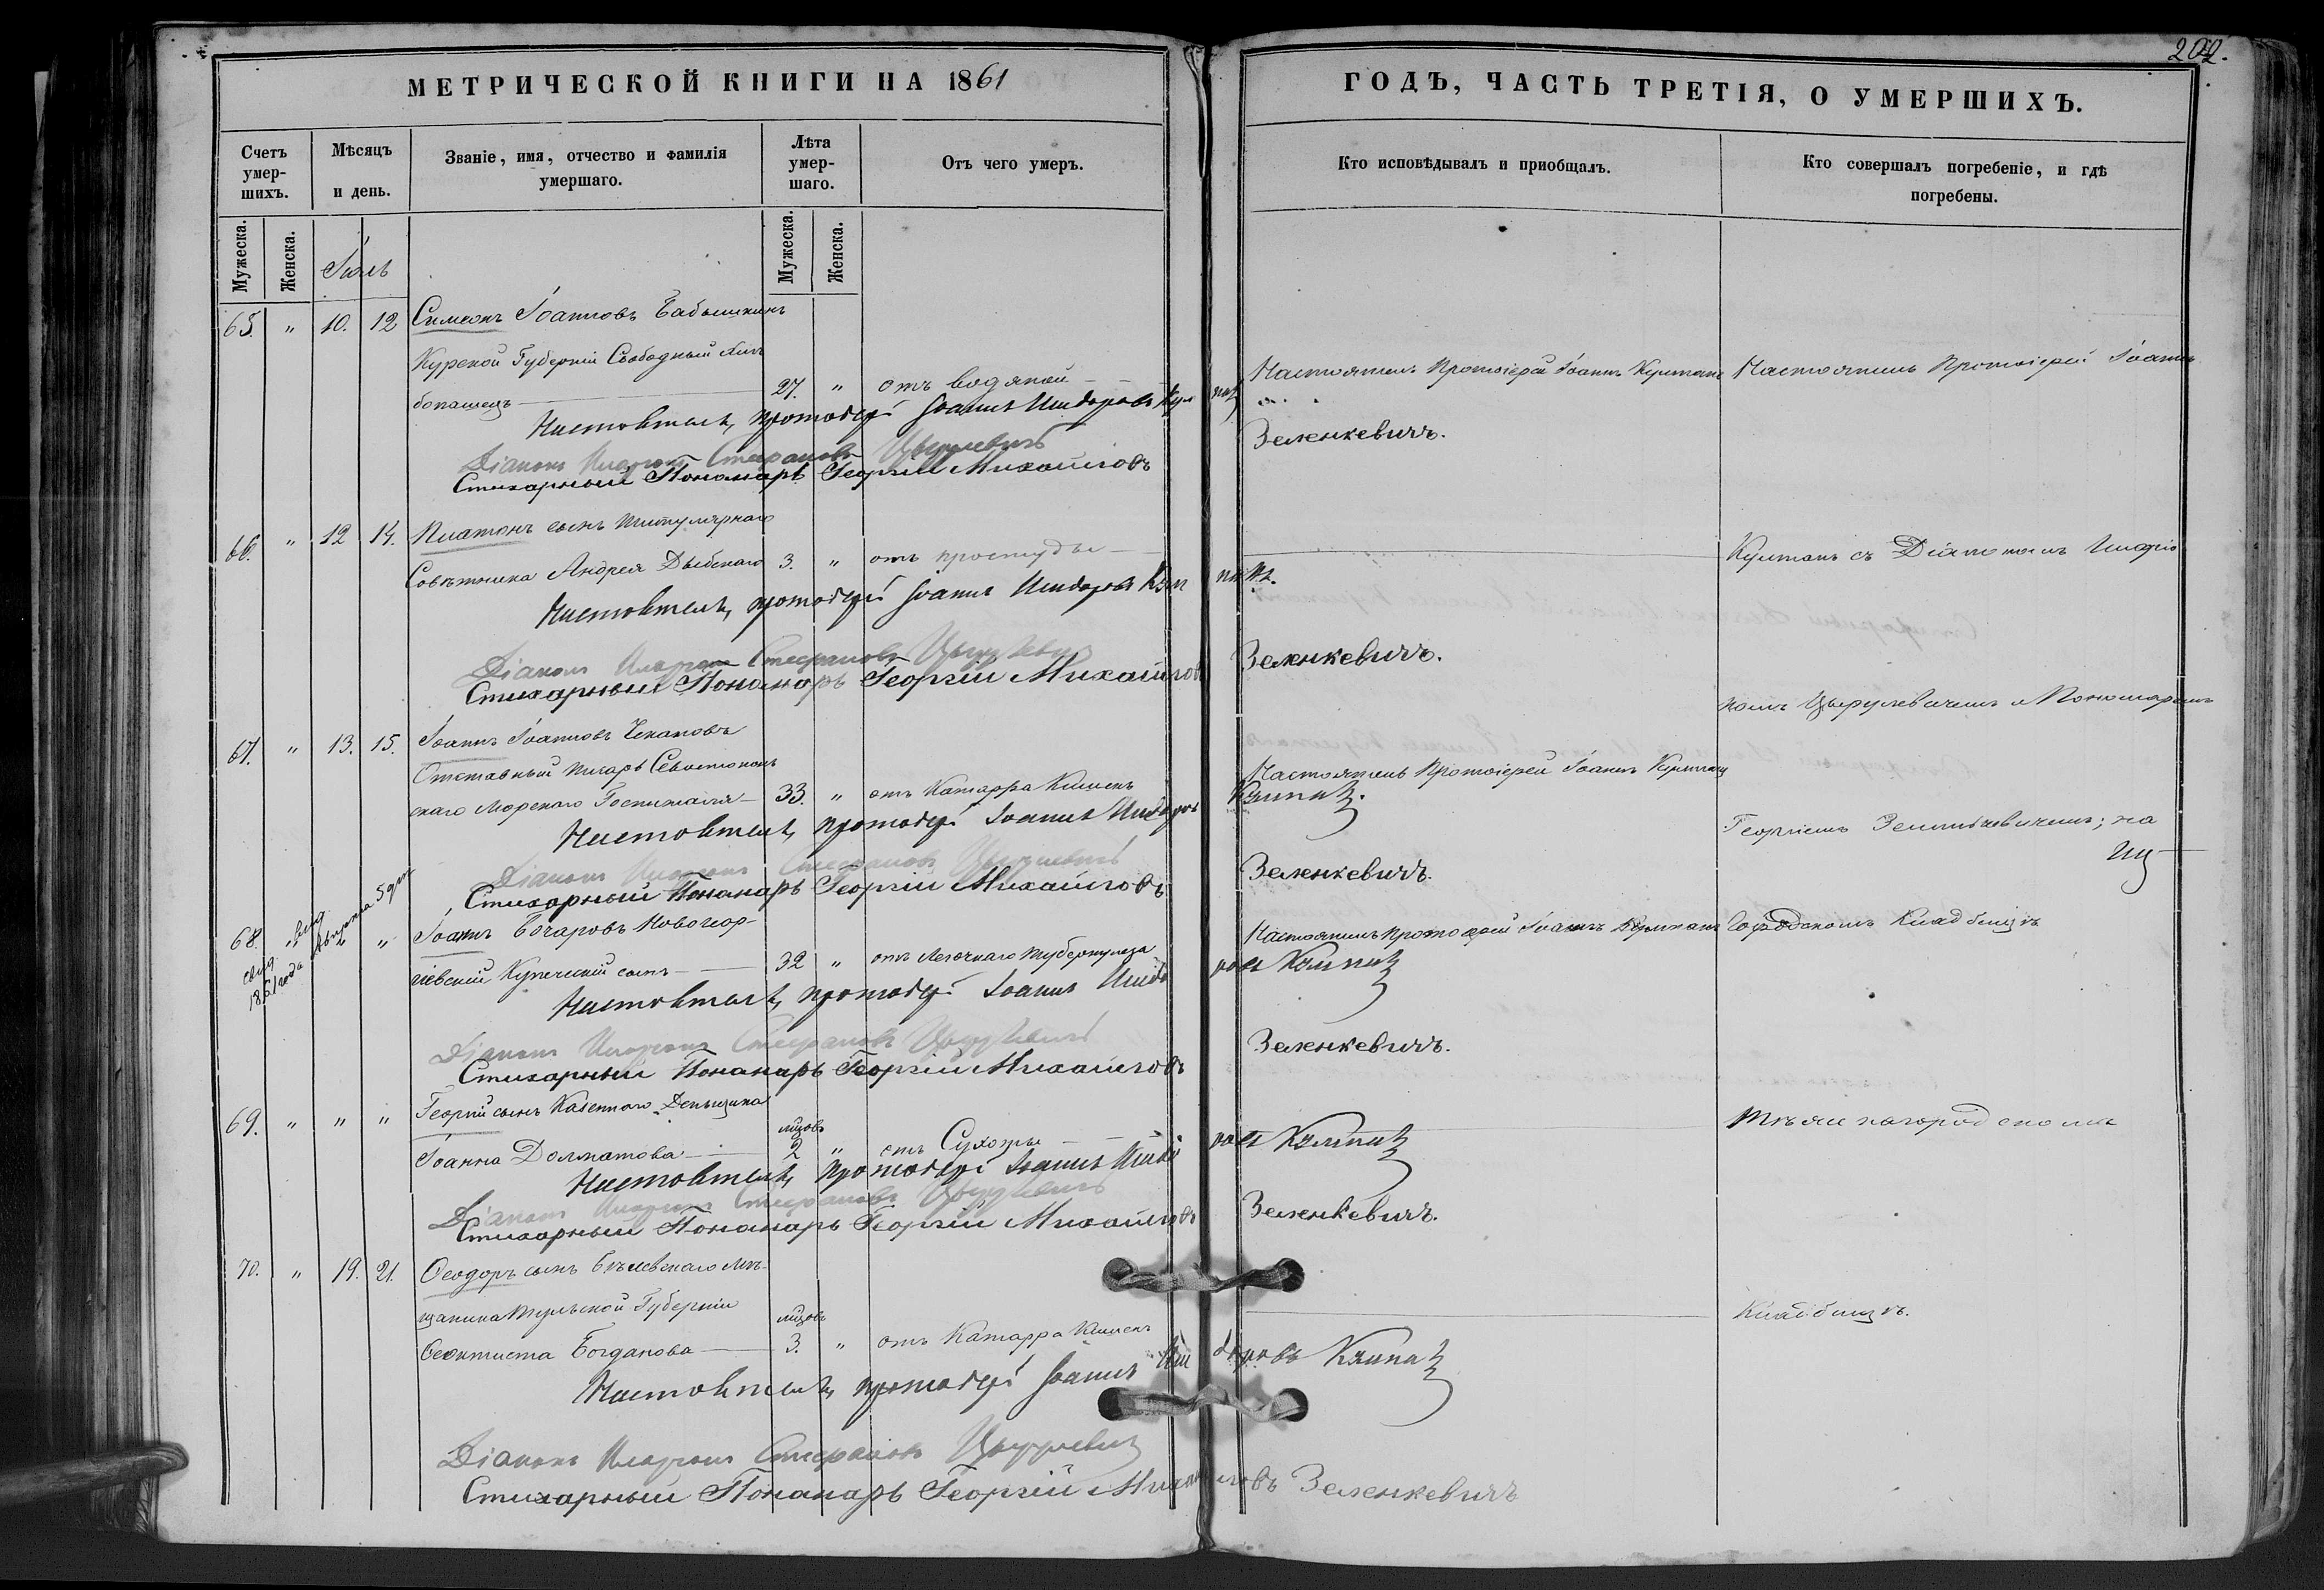 202.
МЕТРИЧЕСКОЙ КНИГИ НА 1861
ГОДЪ, ЧАСТЬ ТРЕТІЯ, О УМЕРШИХЪ.
Счетъ умер-шихъ.
Мѣсяцъ и день.
Званіе, имя, отчество и фамилія умершаго.
Лѣта умер-шаго.
Отъ чего умеръ.
Кто исповѣдывалъ и приобщалъ.
Кто совершалъ погребеніе, и гдѣ погребены.
Мужеска. Женска. Мужеска. Женска.
Іюль
65. " 10. 12 Симеонъ Іоанновъ Бабышкинъ
Курской Губерніи Свободный хлѣ
бопашецъ 27. " отъ водяной
Настоятель Протоіерей Іоаннъ
Настоятель Протоіерей Іоаннъ
Настоятель, протоіерей Іоаннъ Исидоровъ
Діаконъ Иларіонъ Стефановъ Цырулевичъ
Стихарный Пономарь Георгій Михайловъ Зеленкевичъ.
66. " 12 14. Платонъ сынъ Титулярнаго
Совѣтника Андрея Дыбскаго 3. " отъ простуды
съ Діакономъ Иларіо
Настоятель, протоіерей Іоаннъ Исидоровъ
Діаконъ Иларіонъ Стефановъ Цырулевичъ
Стихарный Пономарь Георгій Михайловъ Зеленкевичъ.
номъ Цырулевичемъ и Пономаремъ
67. " 13. 15. Іоаннъ Іоанновъ Чекановъ
Отставный писарь Севастополь
скаго Морскаго Госпиталя 33. " отъ Катарра Кишекъ
Настоятель Протоіерей Іоаннъ
Настоятель, протоіерей Іоаннъ Исидоровъ
Георгіемъ Зеленкевичемъ; на
Діаконъ Иларіонъ Стефановъ Цырулевичъ
Стихарный Пономарь Георгій Михайловъ Зеленкевичъ.
68. " " " Іоаннъ Бочаровъ Новогеор-
гіевскій Купеческій сынъ 32 " отъ Легочнаго туберкулеза
1861 года
Настоятель протоіерей Іоаннъ
Городскомъ Кладбищѣ
Настоятель, протоіерей Іоаннъ Исидоровъ
Діаконъ Иларіонъ Стефановъ Цырулевичъ
Стихарный Пономарь Георгій Михайловъ Зеленкевичъ.
69. " " " Георгій сынъ Казеннаго Деньщика
Іоанна Долматова мѣсяцовъ 2 " отъ Сухоты
Настоятель, протоіерей Іоаннъ Исидоровъ
Діаконъ Иларіонъ Стефановъ Цырулевичъ
Стихарный Пономарь Георгій Михайловъ Зеленкевичъ.
70. " 19. 21. Ѳеодоръ сынъ Бѣлевскаго мѣ-
щанина Тульской Губерніи
Ѳеоктиста Богданова 3. " отъ Катарра Кишекъ
Кладбищѣ.
Настоятель, протоіерей Іоаннъ Исидоровъ
Діаконъ Иларіонъ Стефановъ Цырулевичъ
Стихарный Пономарь Георгій Михайловъ Зеленкевичъ